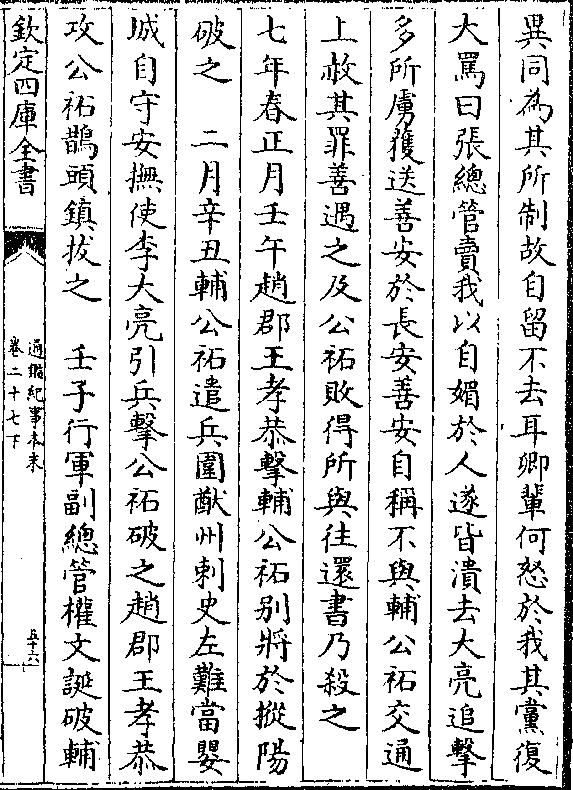 異同為其所制故自留不去耳卿輩何怒於我其黨復
大罵曰張總管賣我以自媚於人遂皆潰去大亮追擊
多所虜獲送善安於長安善安自稱不與輔公祏交通
上赦其罪善遇之及公祏敗得所與往還書乃殺之
七年春正月壬午趙郡王孝恭擊輔公祏别將於摐陽
破之　二月辛丑輔公祏遣兵圍猷州刺史左難當嬰
城自守安撫使李大亮引兵擊公祏破之趙郡王孝恭
攻公祏鵲頭鎮拔之　壬子行軍副總管權文誕破輔
欽定四庫全書
通鑑紀事本末
卷二十七下
五十六